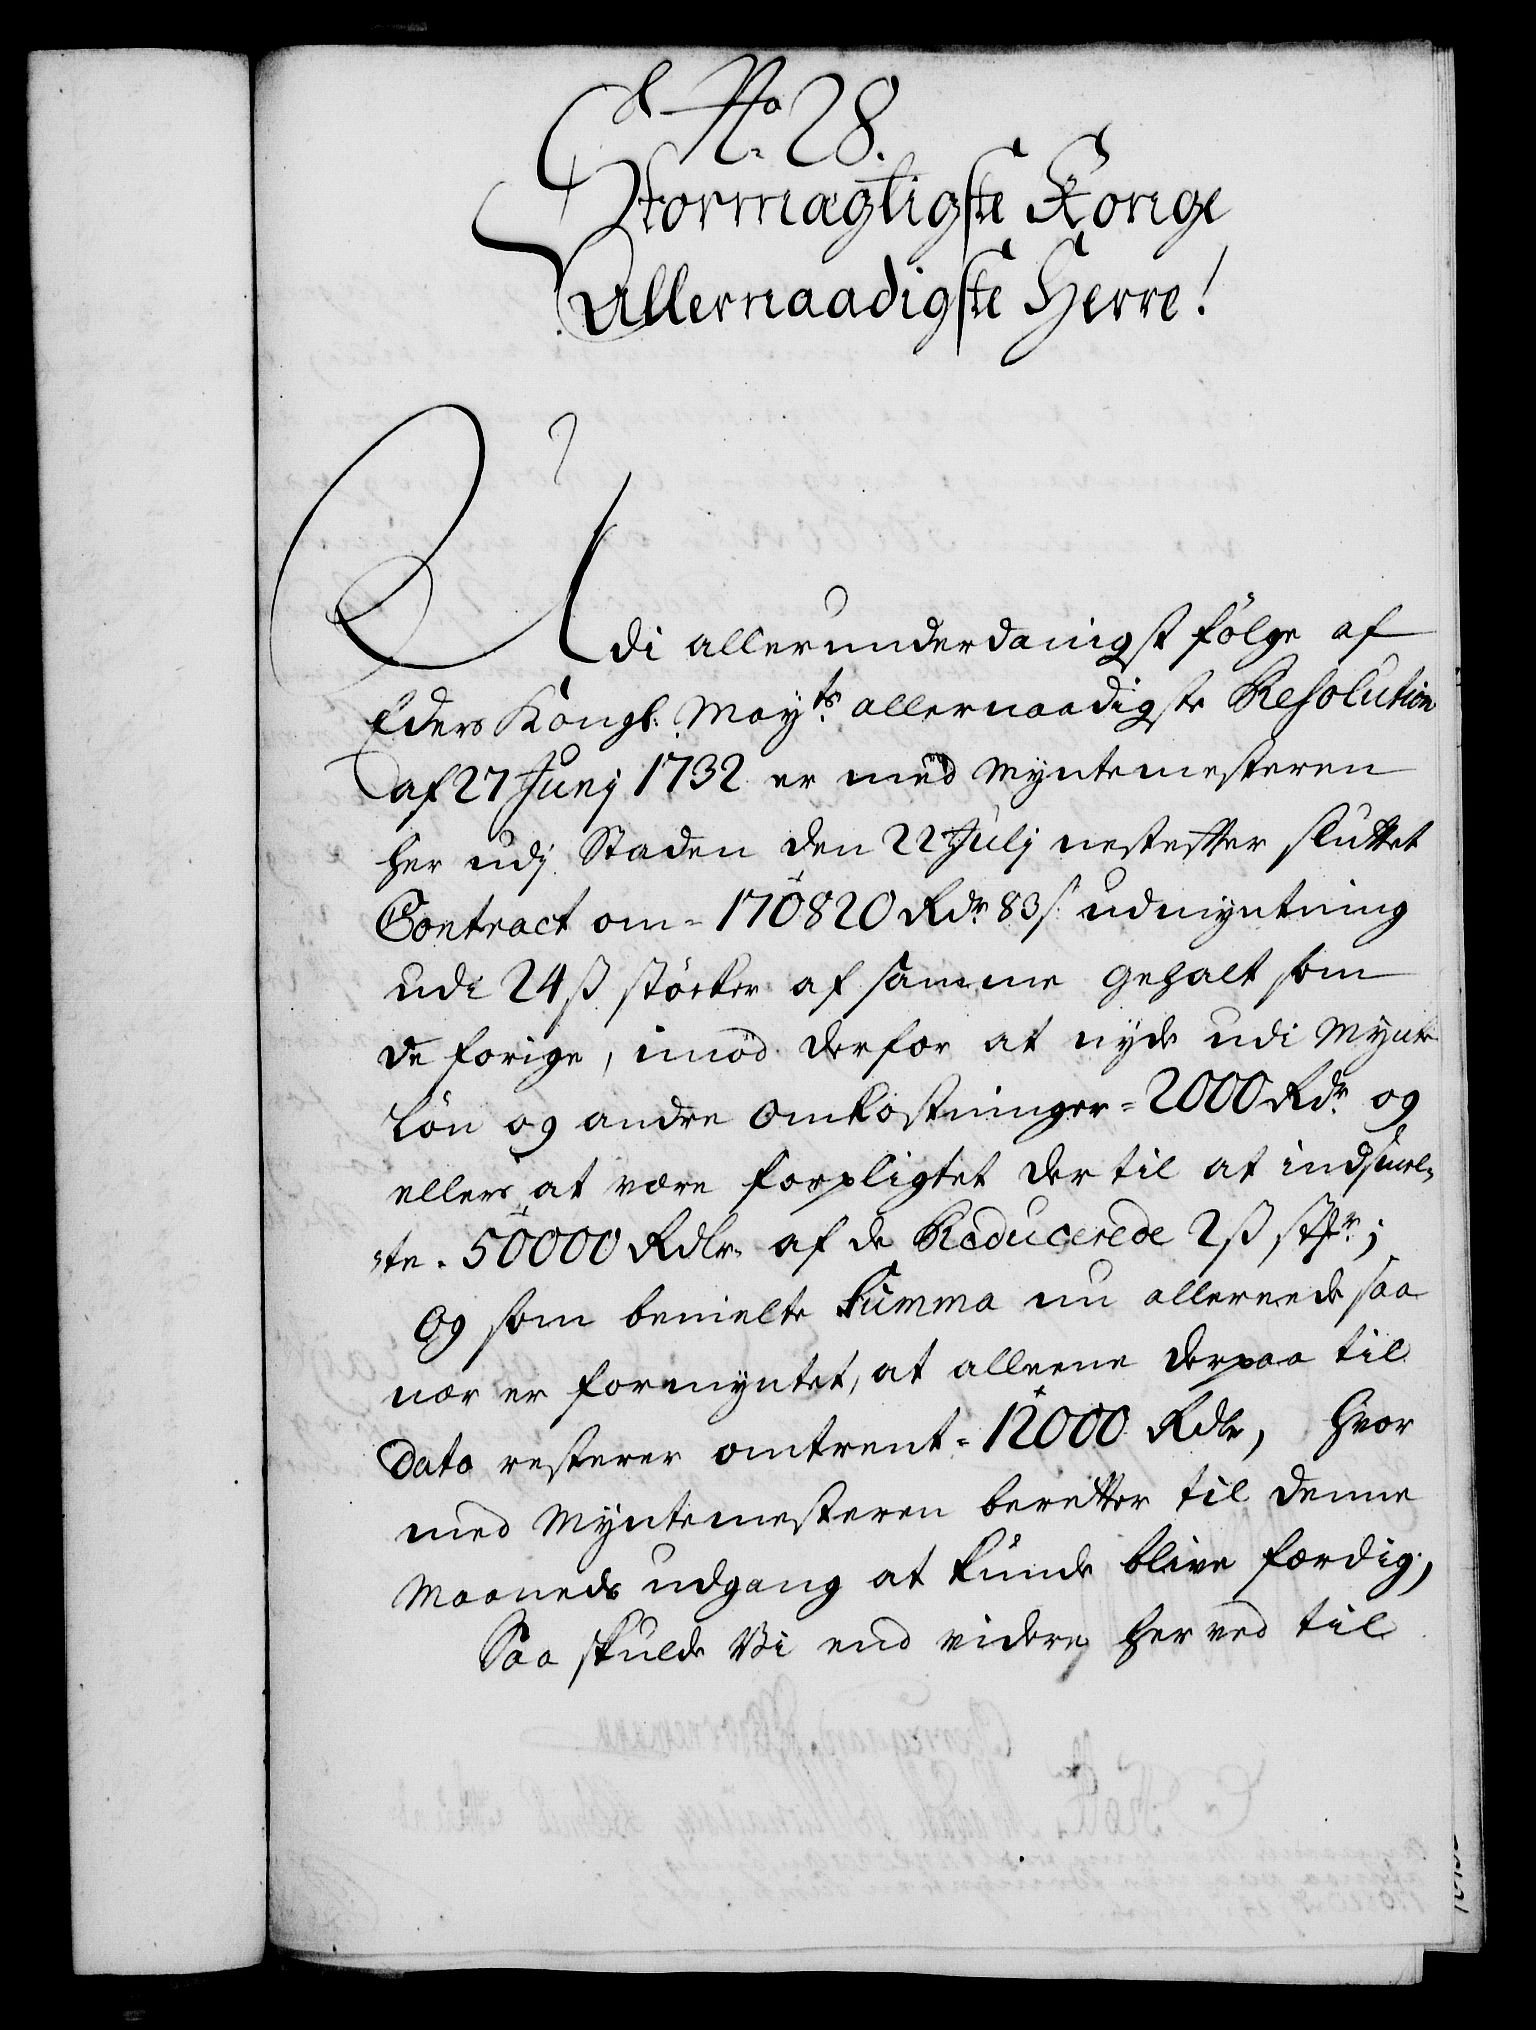 No 28.
Stormægtigste Konge
Allernaadigste Herre!
Udi allerunderdanigst følge af
Eders Kongl: Mayts allernaadigste Resolution
af 27 Junj 1732 er med Myntemesteren
her udj Staden den 22 Julj nestefter sluttet
Contract om = 170820 Rdr 83 s: udmyntning
udi 24 ß støcker af samme gehalt som
de forige, imod derfor at nyde udi Mynte
Løn og andre Omkostninger = 2000 Rdr og
ellers at være forpligtet der til at indsmel-
-te = 50000 Rdlr af de Reducerede 2 ß stkr;
Og som bemelte Summa nu allereede saa
nær er formyntet, at alleene derpaa til
Dato resterer omtrent = 12000 Rdlr, hvor
med Myntemesteren beretter til denne
Maaneds udgang at kunde blive færdig,
Saa skulde Vi end videre her ved til